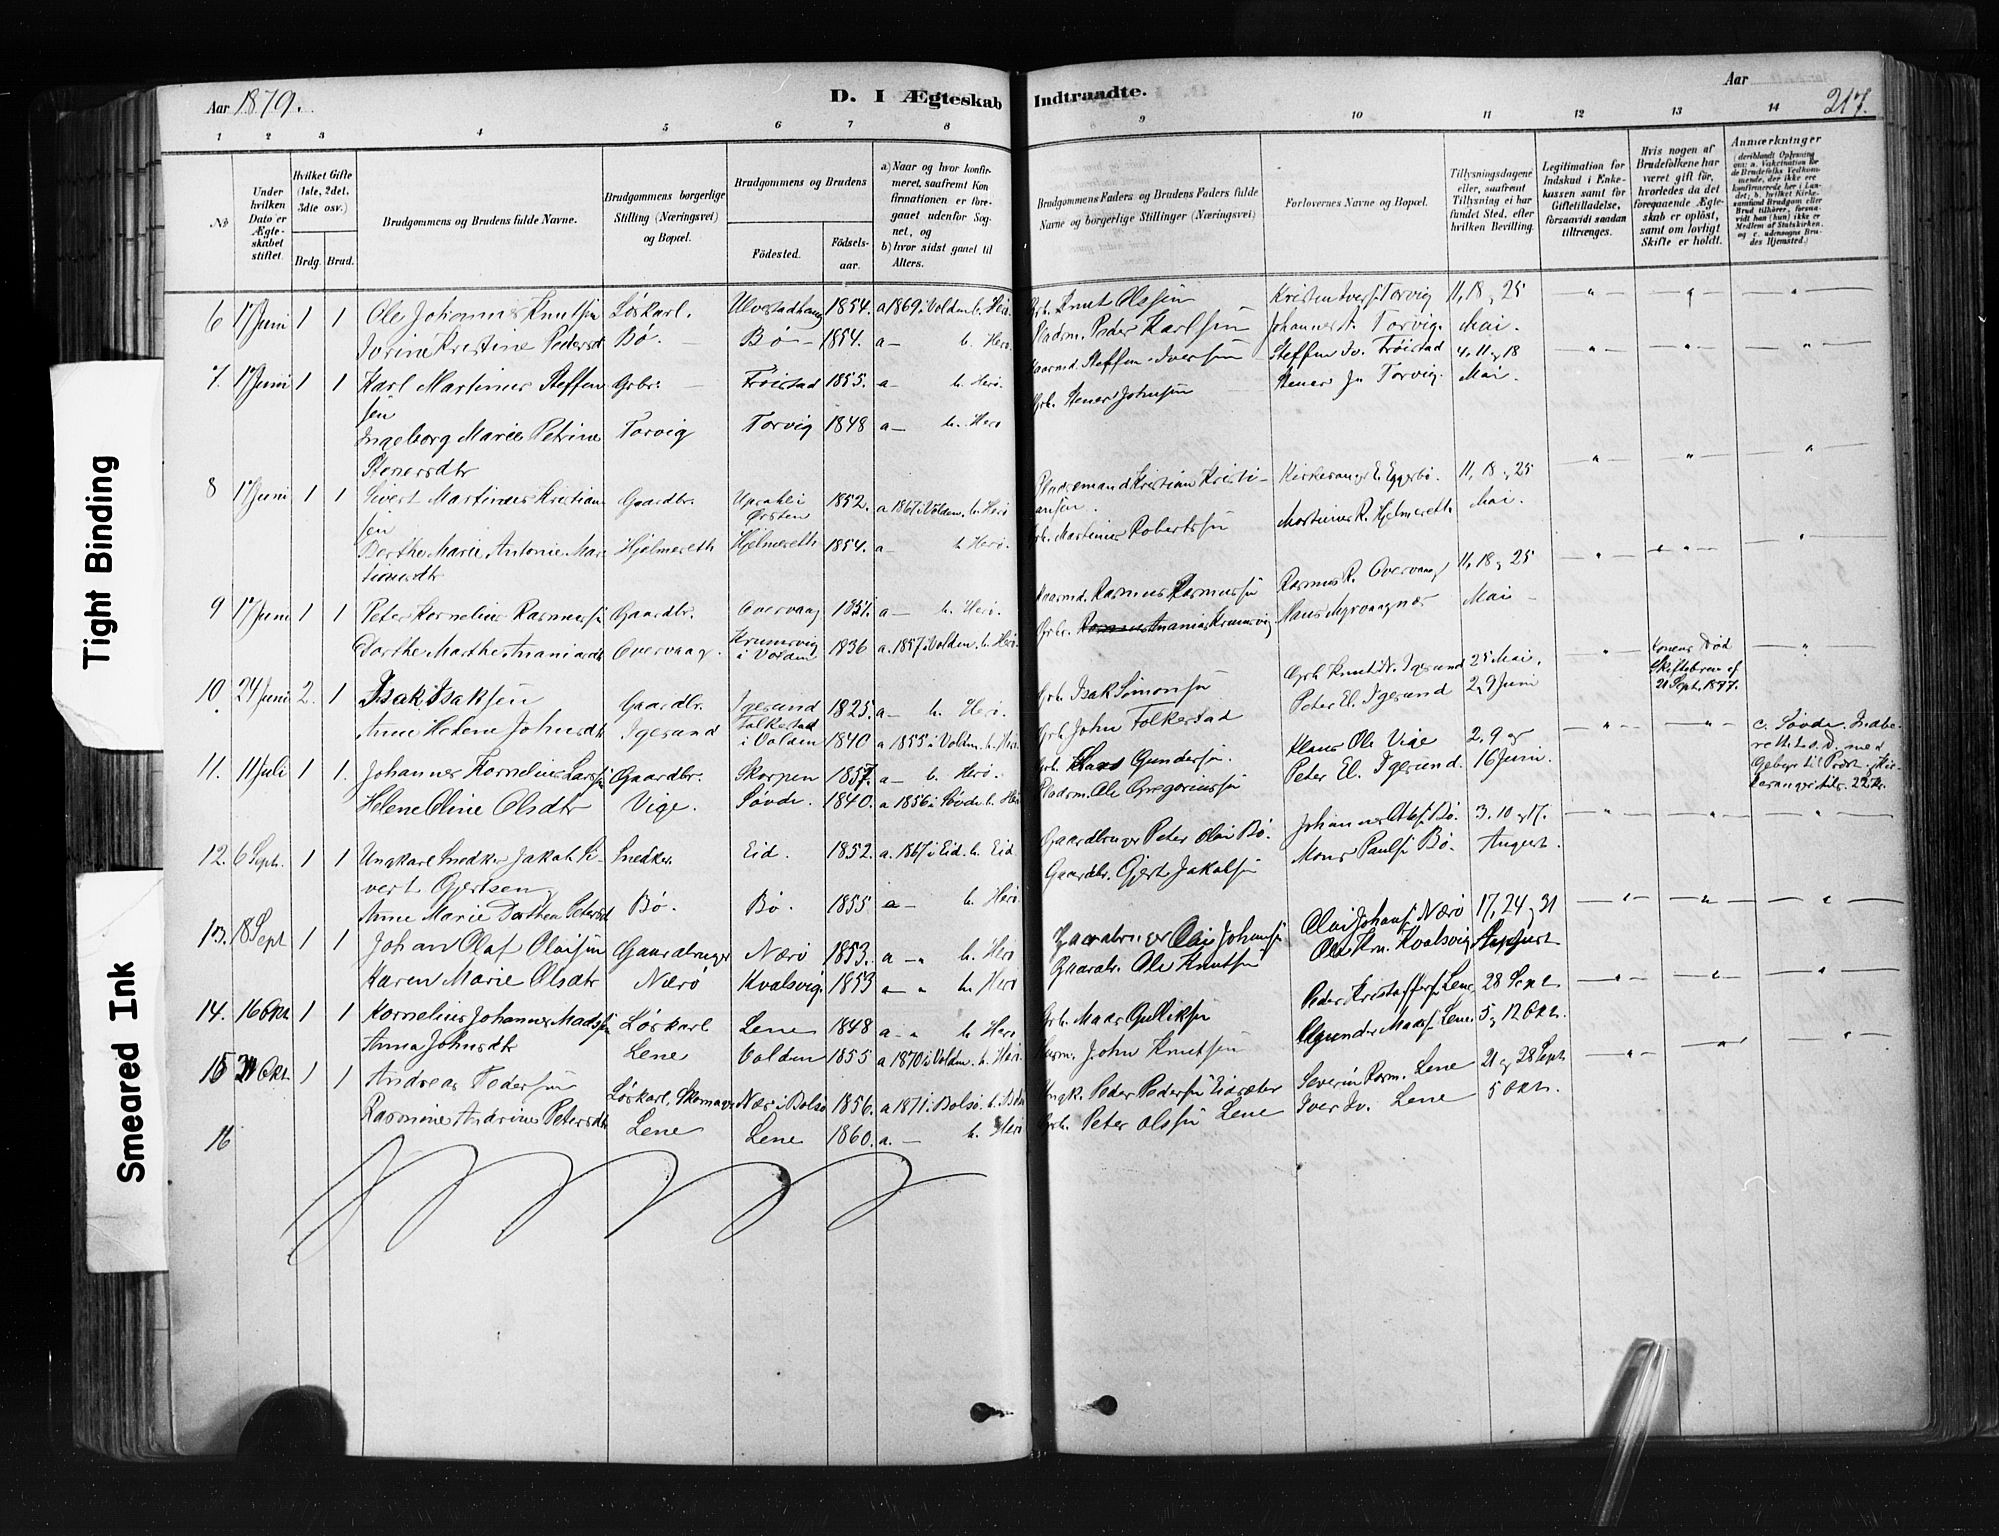 Tight Binding
Smeared Ink
Aar 1879.
D. I Ægteskab Indtraadte.
Aar
217.
1 2 3 4 5 6 7 8 9 10 11 12 13 14
No
Under hvilken Dato er Ægteskabet stiftet.
Hvilket Gifte (1ste, 2det, 3die osv.)
Brdg. Brud.
Brudgommens og Brudens fulde Navne.
Brudgommens borgerlige Stilling (Næringsvei) og Bopæl.
Brudgommens og Brudens
Födested.
Födselsaar.
a) Naar og hvor konfirmeret, saafremt Konfirmationen er foregaaet udenfor Sognet, og
b) hvor sidst gaaet til Alters.
Brudgommens Faders og Brudens Faders fulde Navne og borgerlige Stillinger (Næringsvei)
Forlovernes Navne og Bopæl.
Tillysningsdagene eller, saafremt Tillysning ei har fundet Sted, efter hvilken Bevilling.
Legitimation for Indskud i Enkekassen samt for Giftetilladelse, forsaavidt saadan tiltrænges.
Hvis nogen af Brudefolkene har været gift før, hvorledes da det foregaaende Ægteskab er oplöst, samt om lovligt Skifte er holdt.
Anmærkninger
6 17 Juni 1 1 Ole Johannes Knutsen Løskarl. Ulvestadhaug 1854. a 1869 i Volden b. Herø. Grb. Knut Olssen Kristen Ivers. Torvig 11, 18 og 25
Jorine Kristine Pedersd Bø. Bø 1854. a— b. Herø. Pladsm. Peder Karlsen Johannes A. Torvig. Mai.
7. 17 Juni 1 1 Karl Martinus Steffensen Grbr. Frøistad 1855. a— b. Herø. Steffen Iversen Steffen Iv. Frøistad 4, 11 og 18
Ingeborg Marie Petrine Stenersdtr Torvig Torvig 1848 a— b. Herø Grb. Stener Johnsen Stener Jn Torvig. Mai.
8 17 Juni 1 1 Sivert Martinus Kristiansen Gaardbr. Ørsten 1852. a 1867 i Volden. b. Herø Kristian Kristiansen. Kirkesanger E. Eggesbø. 11, 18 og 25
Berthe Marie Antonie Martinusdtr Hjelmeseth Hjelmeseth 1854. a— b. Herø. Grb. Martinus Robertssen Martinus R. Hjelmeseth Mai.
9 17 Juni 1 1 Peter Kornelius Rasmussen Gaardbr. Overvaag 1851. a— b. Herø. Rasmus Rasmussen Rasmus R. Overvaag 11, 18 og 25
Dorthe Marthe Ananiasdtr Overvaag. Krumsvig i Volden 1836 a. 1857 i Volden b. Herø Grbr. Ananias Krumsvig Hans Myrvaagnæs Mai
10. 24 Juni 2. 1 Isak Isaksen Gaardbr. Igesund 1825. a— b. Herø. Grb. Isak Simonsen Grb. Knut N. Igesund 25 Mai, Konens Død Skiftebrev af 21 Sept. 1877.
Anne Helene Johnsdtr Igesund Folkestad i Volden 1840 a 1855 i Volden b. Herø Grb. John Folkestad Peter El. Igesund 2, 9 Juni
11. 11 Juli 1 1. Johannes Kornelius Larssen Gaardbr. Skorpen 1857. a— b. Herø. Grb. Lars Gundersen. Klaus Ole Vige 2, 9 og
Helene Oline Olsdtr Vige. Søvde. 1840. a 1856 i Søvde b. Herø Pladsm. Ole Gregoriussen Peter El. Igesund. 16 Juni. c. Søvde.
12. 6 Sept. 1 1 Ungkarl Snedker Jakob Sivert Gjertsen Snedker Eid. 1852. a. 1867 i Eid. b. Eid Gaardbruger Peter Olai Bø. Johannes Olss. Bø. 3, 10 og 17.
Anne Marie Dorthea Petersd Bø. Bø. 1855 a— b. Herø Gaardbr. Gjert Jakobsen Mons Pauls. Bø. August.
13. 18 Sept 1 1 Johan Olaf Olaisen Gaardbruger Nærø 1853. a— b. Herø Gaardbruger Olai Johansen Olai Johans. Nærø 17, 24 og 31
Karen Marie Olsdtr Nærø Kvalsvig 1853 a— b. Herø Gaardbr. Ole Knutsen Ole Kn. Kvalsvig August
14. 16 Okt. 1 1 Kornelius Johannes Madssen Løskarl Lene 1848 a— b. Herø Grb. Mads Gulliksen Peder Kristoffers. Lene 28 Sept
Anna Johnsdtr Lene Volden 1855 a 1870 i Volden. b. Herø. Husm. John Knutsen Madss. Lene 5 og 12 Okt.
15 Okt. 1 1 Andreas Pedersen Løskarl, Skomager Næs i Bolsø 1856. a 1871 i Bolsø. b. Ungk. Peder Pedersen Eidsæter Severin Rasm. Lene 21 og 28 Sept.
Rasmine Andrine Petersdtr Lene Lene 1860. a.— b. Herø Grb. Peter Olssen Lene Iver Iv. Lene 5 Okt.
16